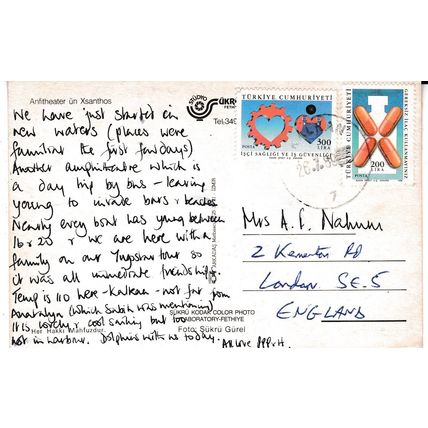 Anfitheater ün Xsanthos
STÜDYO ŞÜKR
FETHİY
Tel:349
We have just started in
new waters (places were
familiar the first few days)
Another amphitheatre which is
a day trip by bus - leaving
young to invade bars & beaches
Nearly every boat has young between
16 & 20 & we are here with a
family on our Topstar tour so
it was all immediate friendships.
Temp is 110 here - Kalkan - not far from
Antalya (which Sabih was mentioning)
It is lovely & cool sailing but too
hot in harbour. Dolphins with us today.
All love
Her Hakkı Mahfuzdur.
ŞÜKRÜ KODAK COLOR PHOTO
LABORATORY-FETHİYE
Foto: Şükrü Gürel
TÜRKİYE CUMHURİYETİ
POSTA
300
LİRA
İŞÇİ SAĞLIĞI VE İŞ GÜVENLİĞİ
TÜRKİYE CUMHURİYETİ
GEREKSİZ İLAÇ KULLANMAYINIZ
POSTA
200
LİRA
Mrs A. P. Nahum
2 Kemerton Rd
London SE.5
ENGLAND